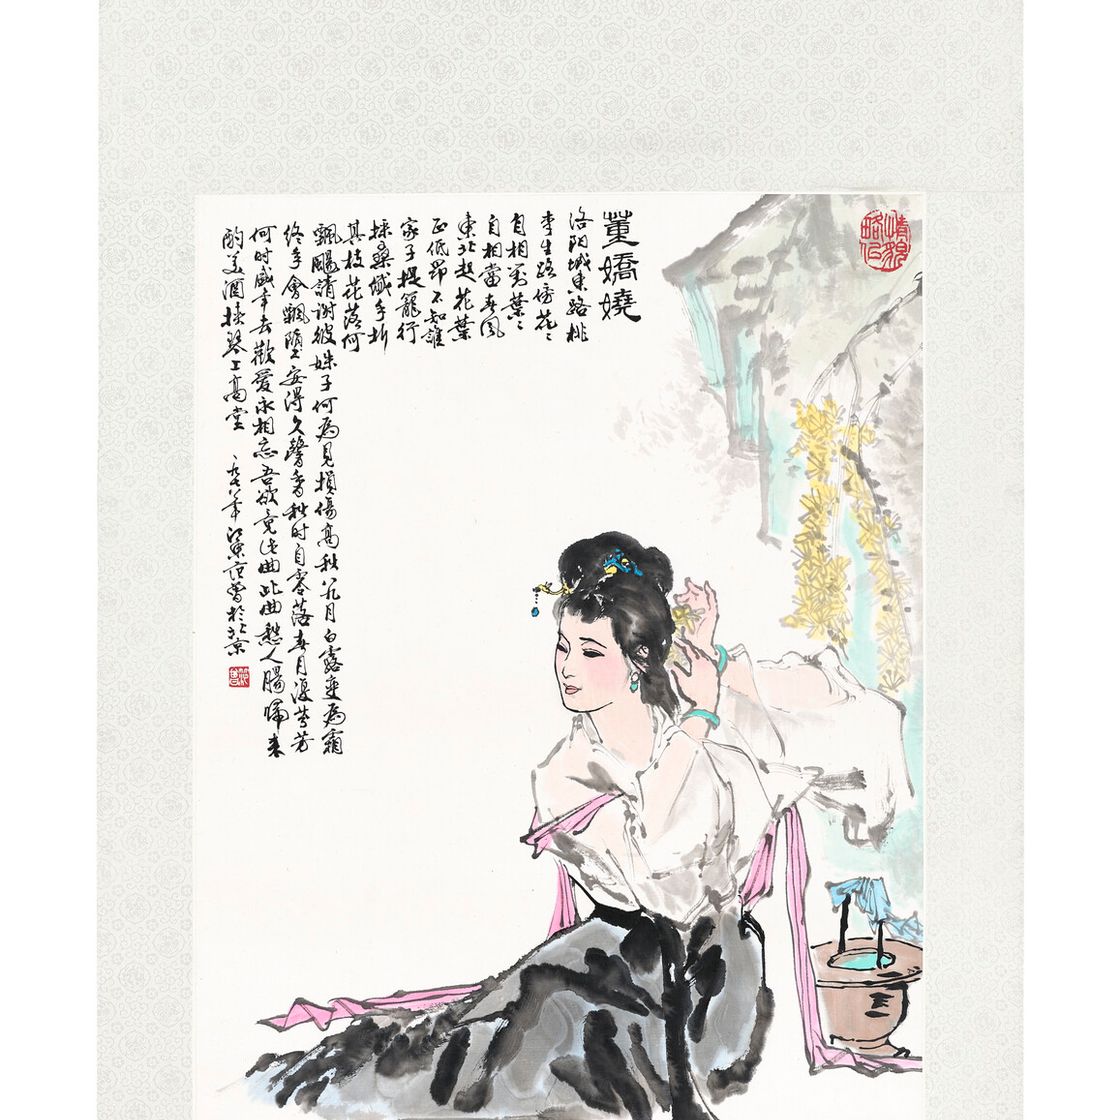 董嬌嬈
洛阳城東路桃
李生路傍花〻
自相對葉〻
自相當春風
東北起花葉
正低昂不知誰
家子提籠行
採桑纖手折
其枝花落何
飄颺請謝彼姝子何為見損傷高秋八九月白露變為霜
終年會飄墮安得久馨香秋时自零落春月復芬芳
何时盛年去歡愛永相忘吾欲竟此曲此曲愁人腸歸来
酌美酒挾琴上高堂 江東范曾於北京
范曾